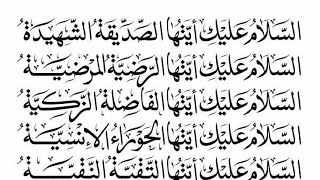 السَّلَامُ عَلَيْكِ أَيَّتُهَا الصِّدِّيقَةُ الشَّهِيدَةُ
السَّلَامُ عَلَيْكِ أَيَّتُهَا الرَّضِيَّةُ الْمَرْضِيَّةُ
السَّلَامُ عَلَيْكِ أَيَّتُهَا الْفَاضِلَةُ الزَّكِيَّةُ
السَّلَامُ عَلَيْكِ أَيَّتُهَا الْحَوْرَاءُ الْإِنْسِيَّةُ
السَّلَامُ عَلَيْكِ أَيَّتُهَا التَّقِيَّةُ النَّقِيَّةُ